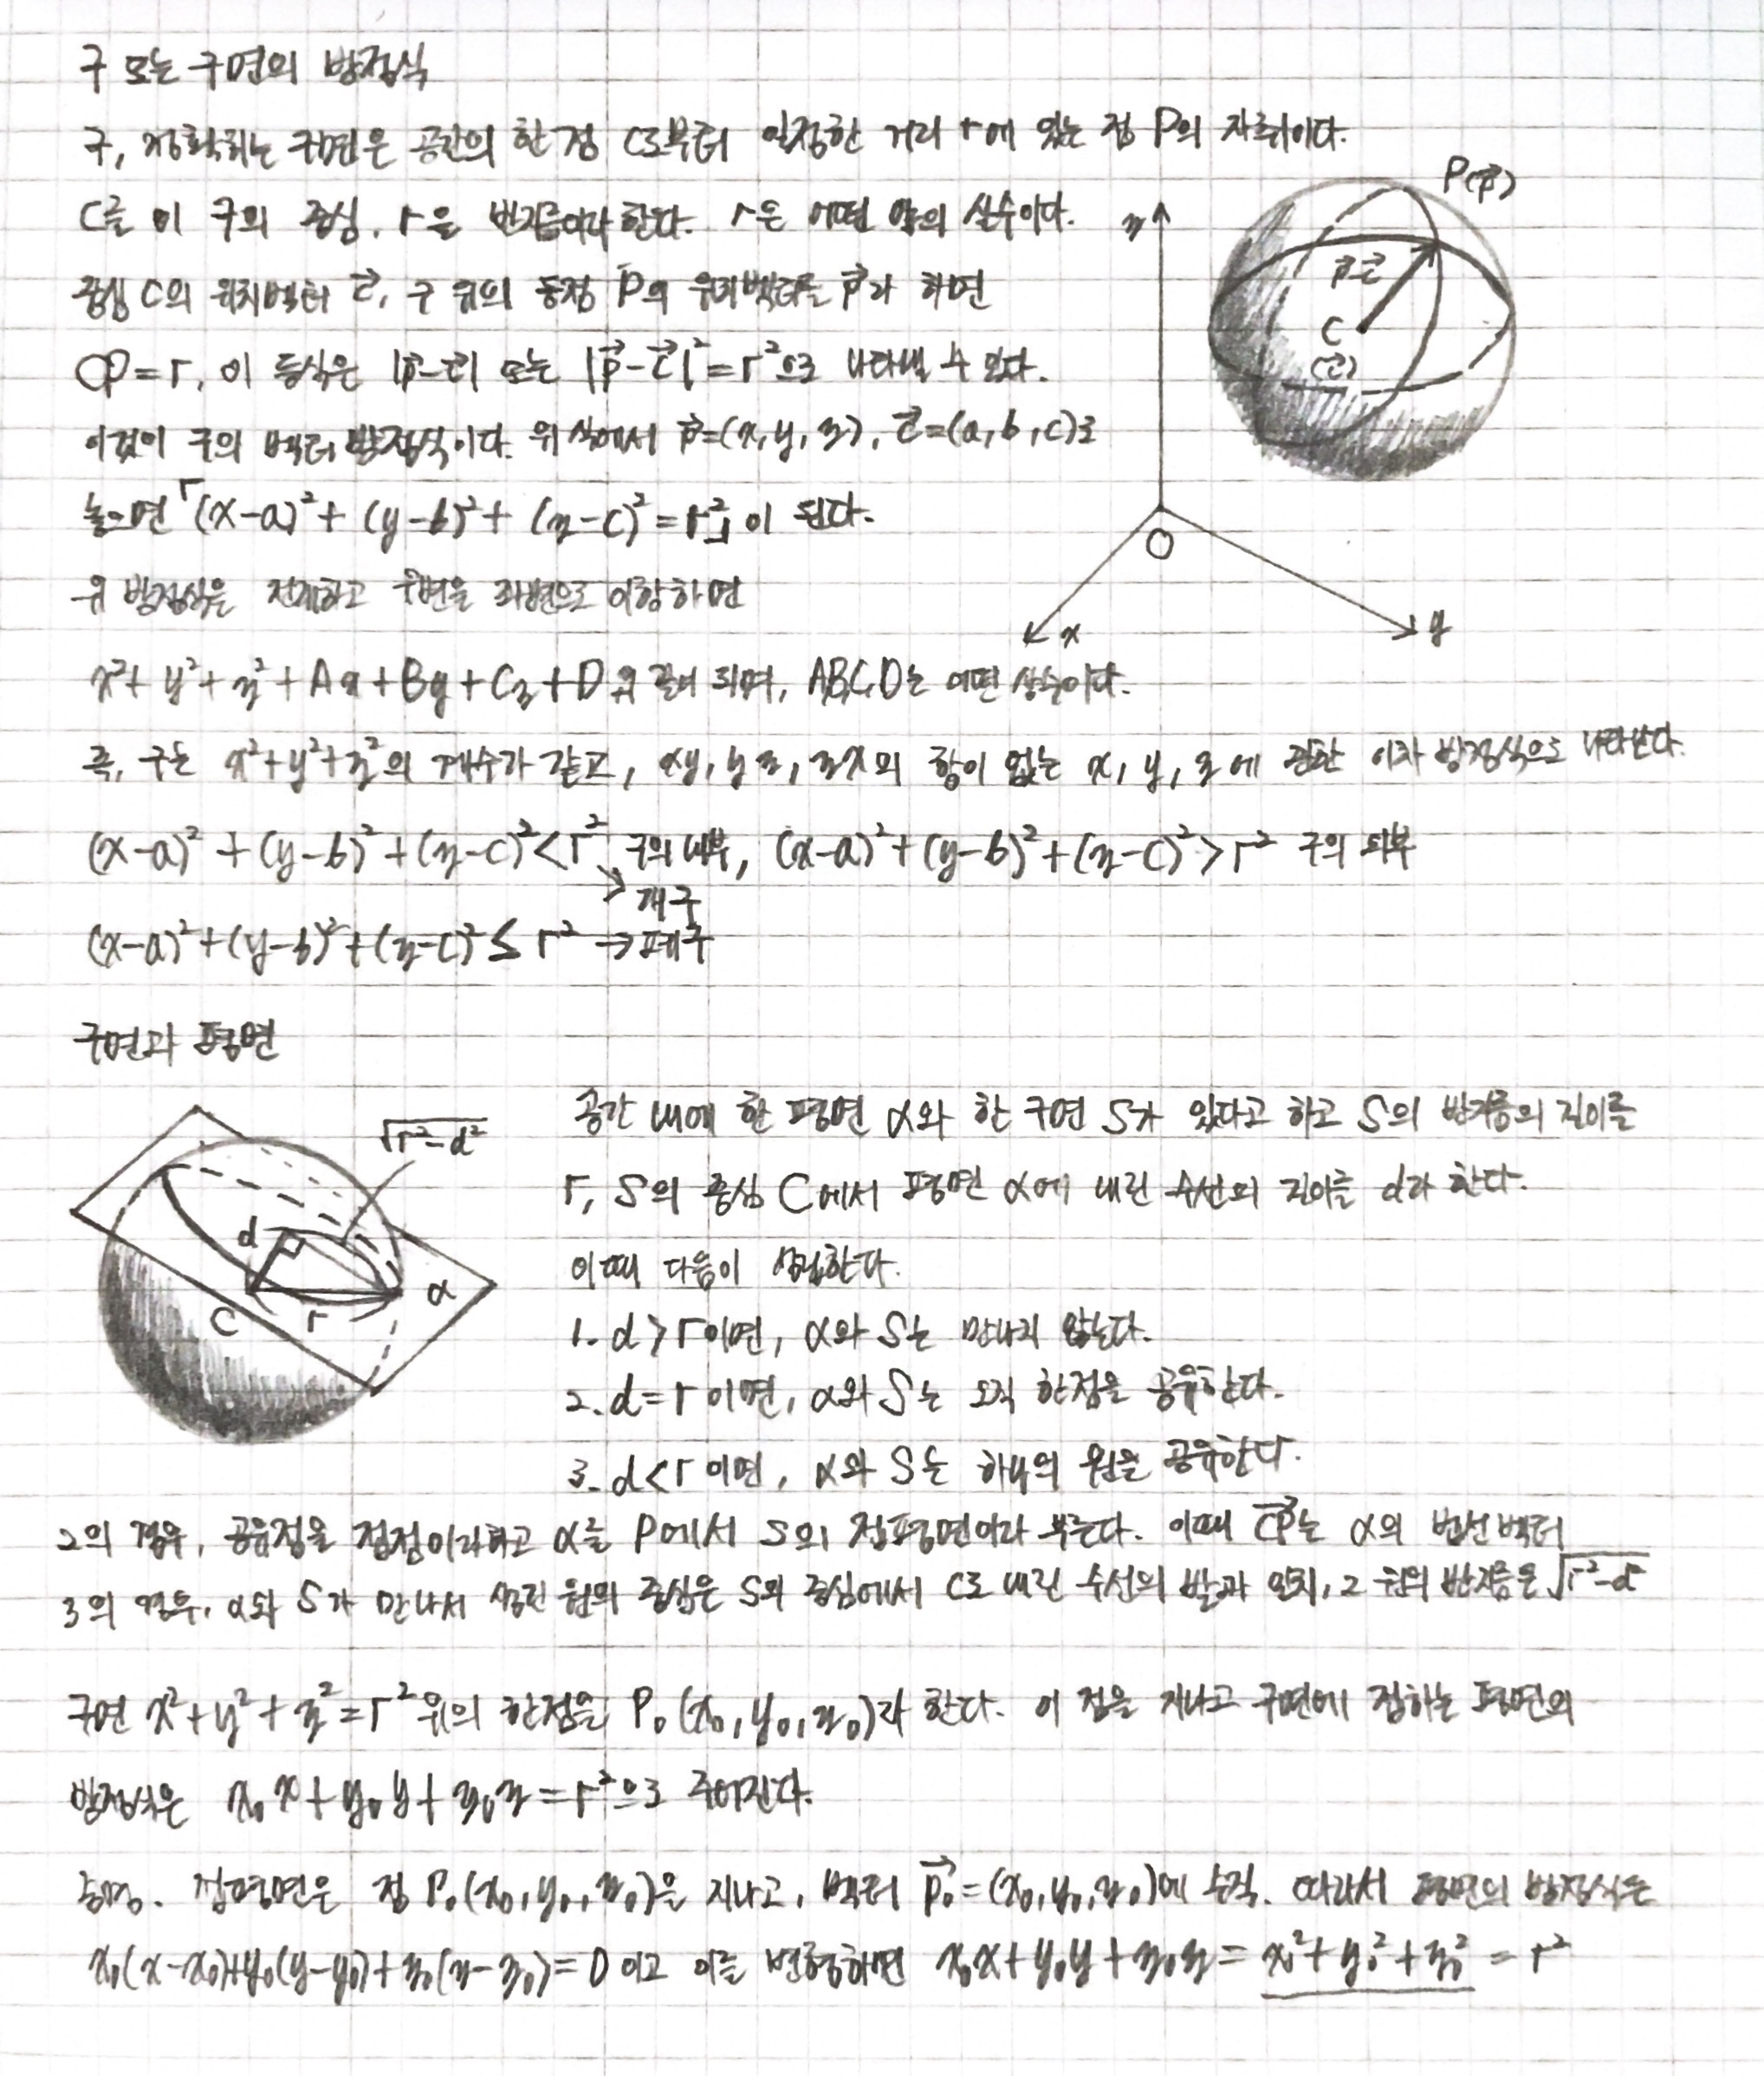 구 또는 구면의 방정식
구, 정확히는 구면은 공간의 한 점 C로부터 일정한 거리 r에 있는 점 P의 자취이다.
C를 이 구의 중심, r을 반지름이라 한다. r은 어떤 양의 실수이다.
중심 C의 위치벡터 c⃗, 구 위의 동점 P의 위치벡터를 p⃗라 하면
CP=r, 이 등식은 |p⃗-c⃗| 또는 |p⃗-c⃗|²=r²으로 나타낼 수 있다.
이것이 구의 벡터 방정식이다. 위 식에서 p⃗=(x, y, z), c⃗=(a, b, c)로
놓으면 「(x-a)²+(y-b)²+(z-c)²=r²」이 된다.
위 방정식을 전개하고 우변을 좌변으로 이항하면
x²+y²+z²+Ax+By+Cz+D 와 같이 되며, A,B,C,D는 어떤 상수이다.
즉, 구는 x²+y²+z²의 계수가 같고, xy, yz, zx의 항이 없는 x, y, z에 관한 이차 방정식으로 나타난다.
(x-a)²+(y-b)²+(z-c)²<r² 구의 내부, (x-a)²+(y-b)²+(z-c)²>r² 구의 외부
↘ 개구
(x-a)²+(y-b)²+(z-c)²≤r² → 폐구
P(p⃗)
p⃗-c⃗
C
(c⃗)
z
O
x
y
구면과 평면
√r²-d²
d
C
r
α
공간 내에 한 평면 α와 한 구면 S가 있다고 하고 S의 반지름의 길이를
r, S의 중심 C에서 평면 α에 내린 수선의 길이를 d라 한다.
이때 다음이 성립한다.
1. d>r이면, α와 S는 만나지 않는다.
2. d=r이면, α와 S는 오직 한점을 공유한다.
3. d<r이면, α와 S는 하나의 원을 공유한다.
2의 경우, 공유점을 접점이라하고 α를 P에서 S의 접평면이라 부른다. 이때 CP⃗는 α의 법선벡터
3의 경우, α와 S가 만나서 생긴 원의 중심은 S의 중심에서 C로 내린 수선의 발과 일치, 그 원의 반지름은 √r²-d²
구면 x²+y²+z²=r² 위의 한점을 P₀(x₀, y₀, z₀)라 한다. 이 점을 지나고 구면에 접하는 평면의
방정식은 x₀x+y₀y+z₀z=r²으로 주어진다.
증명. 접평면은 점 P₀(x₀, y₀, z₀)을 지나고, 벡터 p₀⃗=(x₀, y₀, z₀)에 수직. 따라서 평면의 방정식은
x₀(x-x₀)+y₀(y-y₀)+z₀(z-z₀)=0이고 이를 변형하면 x₀x+y₀y+z₀z=x₀²+y₀²+z₀²=r²